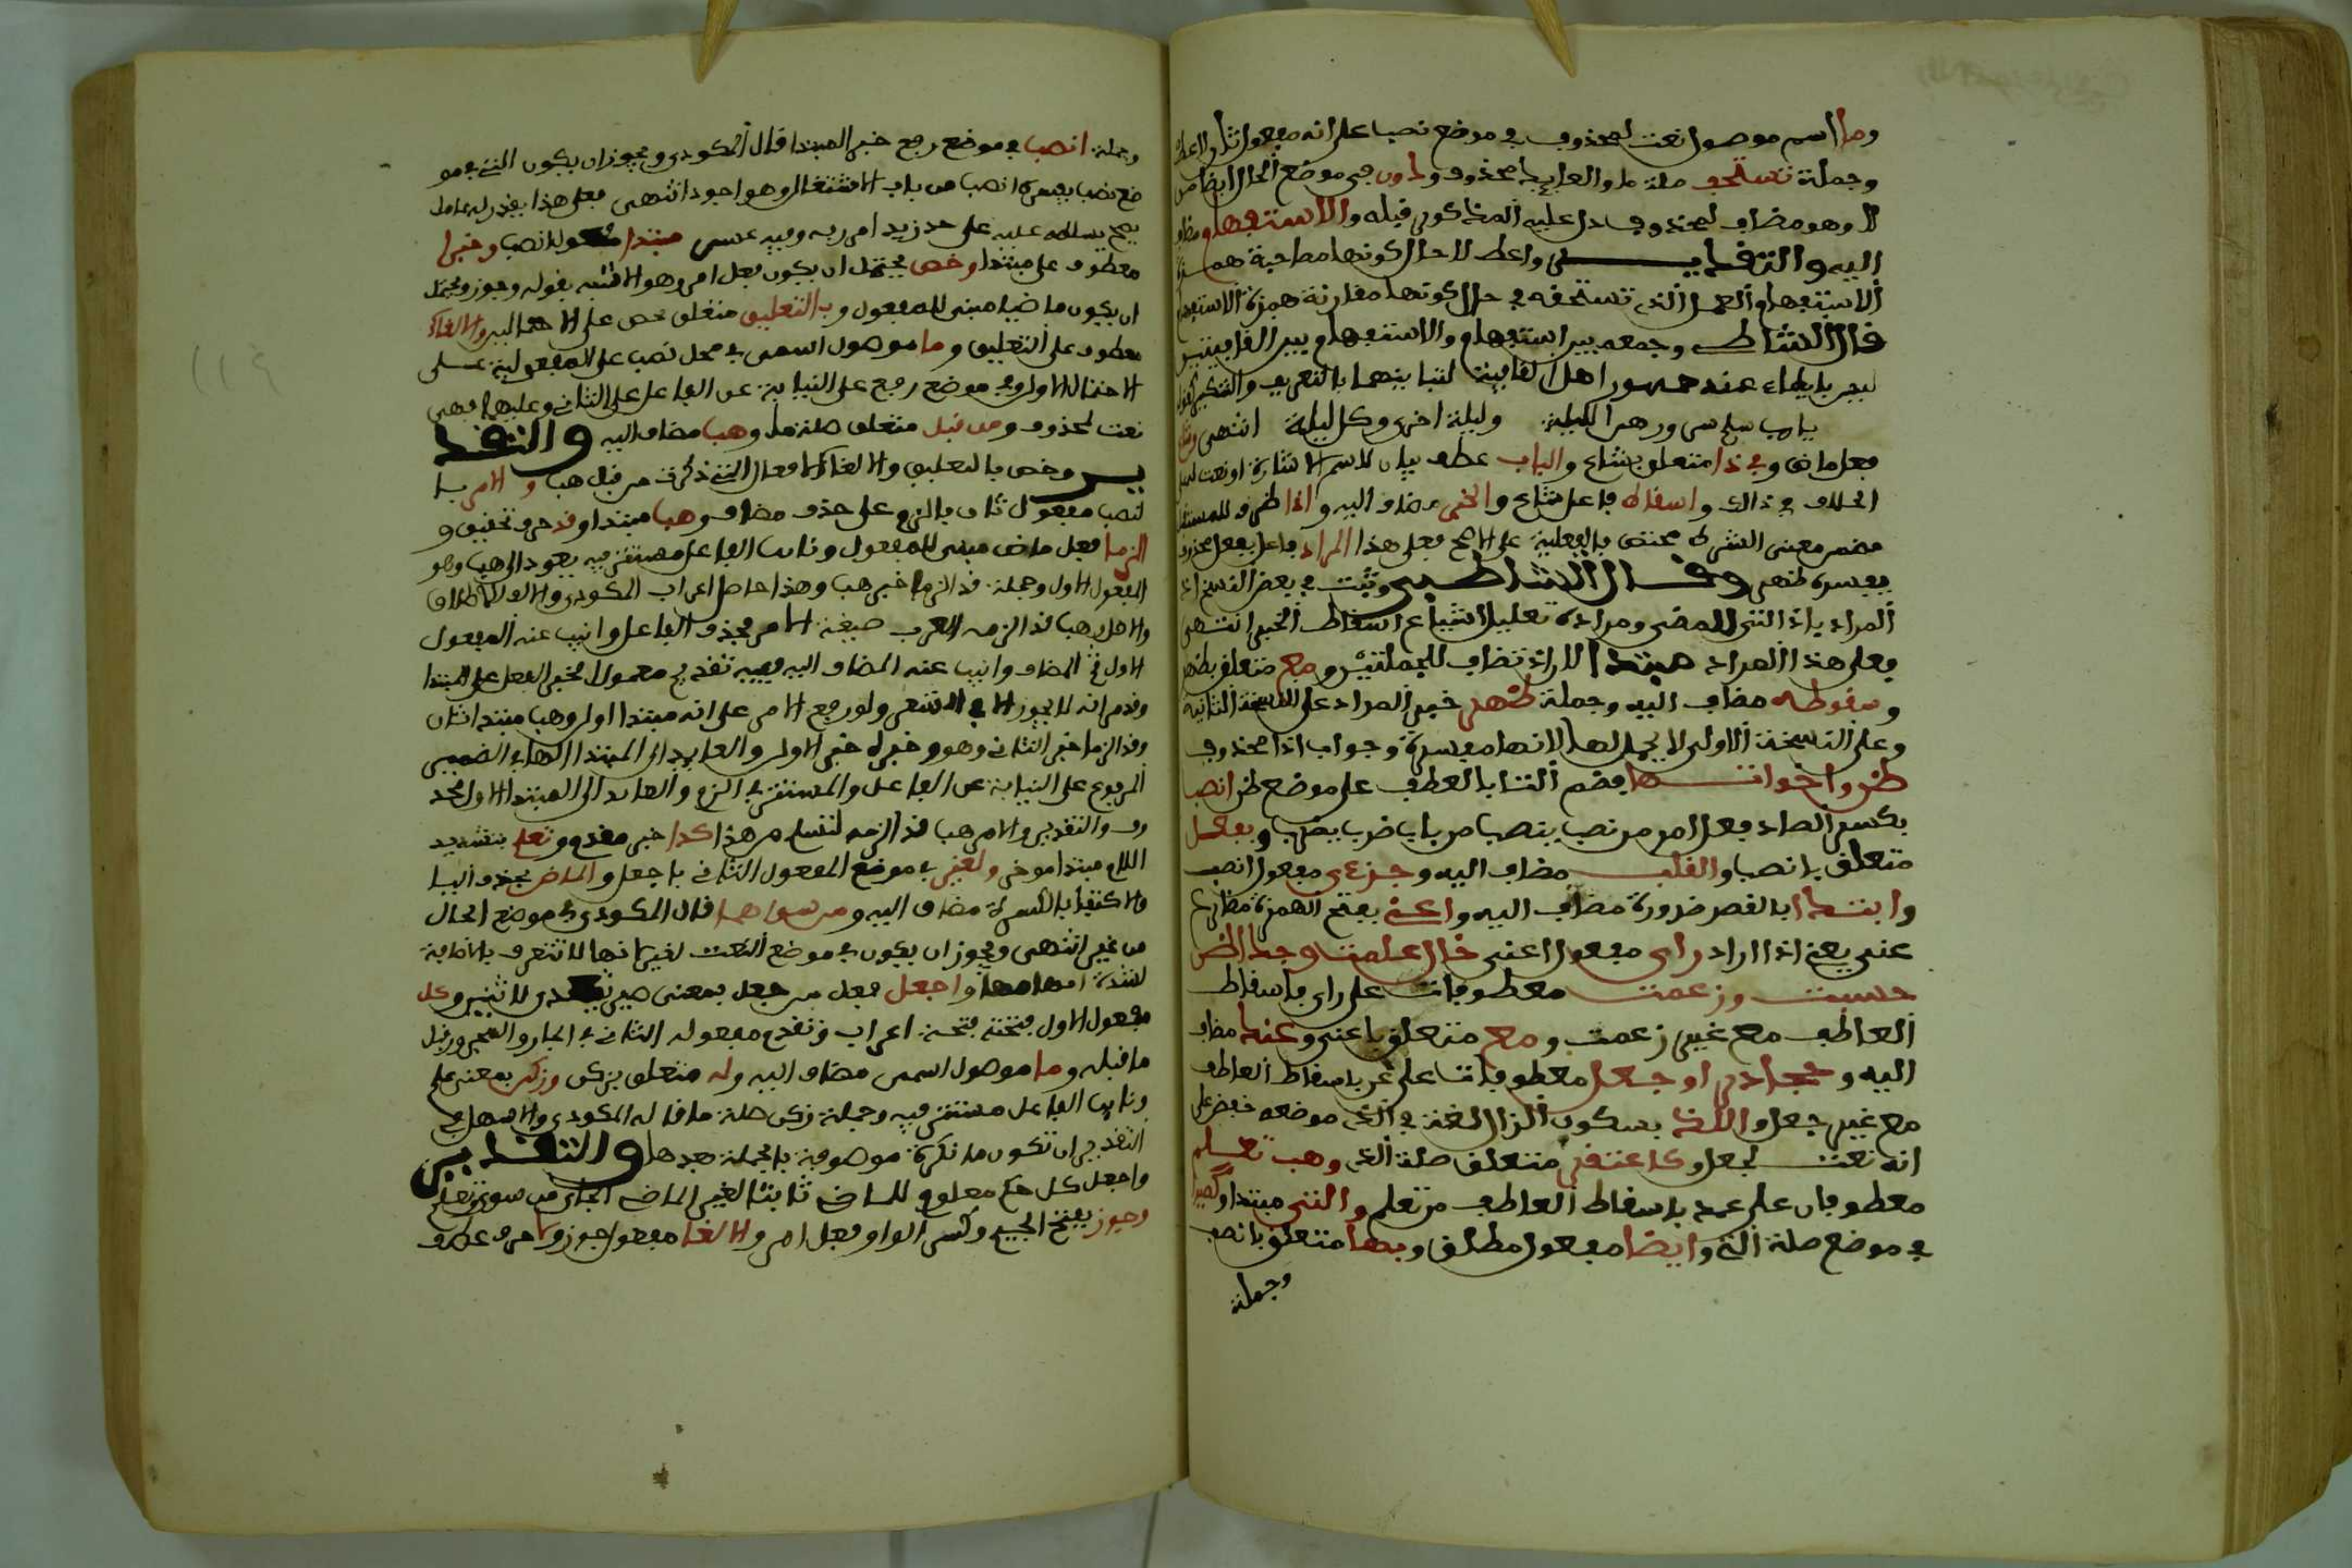 وما اسم موصول نعت لمحذوف في موضع نصب على انه مفعول ثان لاعط
وجملة تستحق صلة ما والعايد محذوف ودون في موضع الحال ايضا من
لا وهو مضاف لمحذوف دل عليه المذكور قبله والاستفهام مضاف
اليه والتقدير واعط لا حال كونها مصاحبة همزة
الاستفهام العمل الذي تستحقه في حال كونها مفارنة همزة الاستفهام
قال الشاطبي وجمعه بين استفهام والاستفهام بين القافيتين
ليس بايطاء عند جمهور اهل القافية لتباينهما بالتعريف والتنكير كقوله
يارب سلم سدورهن الليله وليلة اخرى وكل ليلة انتهى وشاع
فعل ماض وفي ذا متعلق بشاع والباب عطف بيان لاسم الاشارة او نعت له على
الخلاف في ذلك واسقاط فاعل شاع والخبر مضاف اليه واذا ظرف للمستقبل
مضمن معنى الشرط مختص بالفعلية على الاصح فعلى هذا المراد فاعل بفعل محذوف
يفسره ظهر وقال الشاطبي وثبت في بعض النسخ اذ
المراد باذ التي للمضي ومراده تعليل اشياع اسقاط الخبر انتهى
وعلى هذا المراد مبتدا لان اذ تضاف للجملتين ومع متعلق بظهر
وسقوطه مضاف اليه وجملة ظهر خبر المراد على النسخة الثانية
وعلى النسخة الاولى لا محل لها لانها مفسرة وجواب اذا محذوف
ظن واخواتها بضم التا بالعطف على موضع ظن انصب
بكسر الصاد فعل امر من نصب ينصب من باب ضرب يضرب وبفعل
متعلق بانصب والقلب مضاف اليه وجزءي مفعول انصب
وابتدا بالقصر ضرورة مضاف اليه واعني بفتح الهمزة مضارع
عنى يعني اذا اراد راى مفعول اعني خال علمت وجدا ظن
حسبت وزعمت معطوفات على راى باسقاط
العاطف مع غير زعمت ومع متعلق باعني وعد مضاف
اليه وحجا درى وجعل معطوفات على عد باسقاط العاطف
مع غير جعل واللذ بسكون الذال لغة في الذي موضعه خفض على
انه نعت لجعل وكاعتقد متعلق صلة الذي وهب تعلم
معطوفان على عد باسقاط العاطف من تعلم والتي مبتدا وكصيرا
في موضع صلة التي وايضا مفعول مطلق وبها متعلق بانصب
وجملة
وجملة انصب في موضع رفع خبر المبتدا قال المكودي ويجوز ان يكون التي في مو
ضع نصب يفسره انصب من باب الاشتغال وهو اجود انتهى فعلى هذا يقدر له عامل
يصح تسلطه عليه على حد زيدا امرر به وفيه عسر مبتدا مفعول انصب وخبرا
معطوف على مبتدا وخص يحتمل ان يكون فعل امر وهو الاشبه بقوله وجوز ويحتمل
ان يكون ماضيا مبني للمفعول وبالتعليق متعلق بخص على الاحتمالين والالغاء
معطوف على التعليق وما موصول اسمي في محل نصب على المفعولية على
الاحتمال الاول وفي موضع رفع على النيابة عن الفاعل على الثاني وعليهما فهي
نعت لمحذوف ومن قبل متعلق صلة ما وهب مضاف اليه والتقد
ير وخص بالتعليق والالغاء الافعال التي ذكرت من قبل هب والامر با
لنصب مفعول ثان بالزم على حذف مضاف وهب مبتدا وقد حرف تحقيق و
الزما فعل ماض مبني للمفعول ونايب الفاعل مستتر فيه يعود الى هب وهو
المفعول الاول وجملة قد الزما خبر هب وهذا حاصل اعراب المكودي والالف للاطلاق
والاصل وهب قد الزمه العرب صيغة الامر فحذف الفاعل وانيب عنه المفعول
الاول ثم المضاف وانيب عنه المضاف اليه ففيه تقديم معمول الخبر الفعل على المبتدا
وقدم انه لا يجوز الا في الشعر ولو رفع الامر على انه مبتدا اول وهب مبتدا ثان
وقد الزما خبر الثاني وهو وخبره خبر الاول والعايد الى المبتدا الهاء الضمير
المرفوع على النيابة عن الفاعل والمستتر في الزم والعايد الى المبتدا الاول محذ
وف والتقدير والامر هب قد الزمه لنفسه من هذا كذا خبر مقدم وتعلم بتشديد
اللام مبتدا موخر ولغير في موضع المفعول الثاني باجعل والماض بحذف اليا
والاكتفا بالكسرة مضاف اليه ومن سواهما قال المكودي في موضع الحال
من غير انتهى ويجوز ان يكون في موضع النعت لغير لانها لا تتعرف بالاضافة
لشدة ابهامها واجعل فعل من جعل بمعنى صير يتعدى لاثنين وكل
مفعول الاول ففتحته فتحة اعراب وتقدم مفعوله الثاني في الجار والمجرور قبل
ما قبله وما موصول اسمي مضاف اليه وله متعلق بزكن وزكن بمعنى علم
ونايب الفاعل مستتر فيه وجملة زكن صلة ما قاله المكودي والاسهل في
التقدير ان تكون ما نكرة موصوفة بالجملة بعدها والتقدير
واجعل كل حكم معلوم للماضي ثابتا لغير الماضي الجاي من سوى تعلم
وجوز بفتح الجيم وكسر الواو فعل امر والالغا مفعول جوز ولا حرف عطف